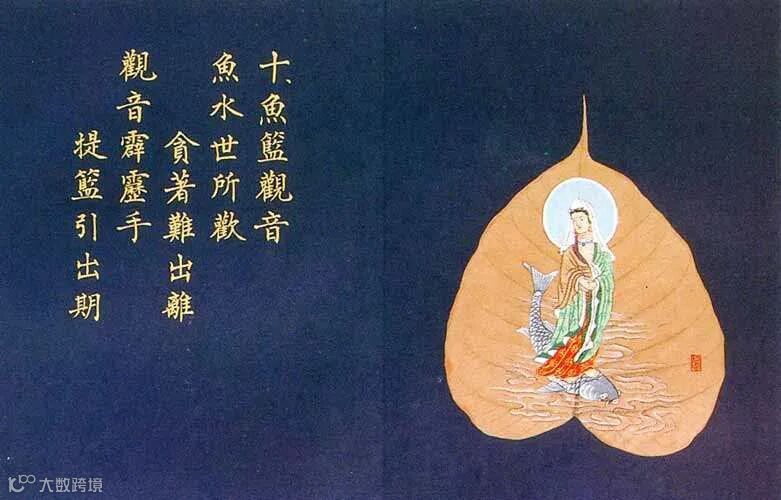 十、魚籃觀音
魚水世所歡
貪著難出離
觀音霹靂手
提籃引出期
大数跨境